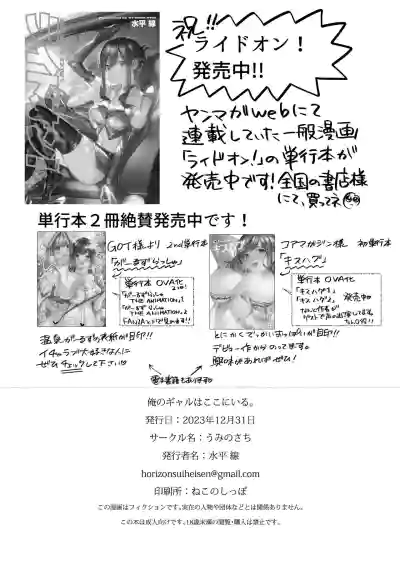 水平 線
祝!!
ライドオン!
発売中!!
ヤンマガwebにて
連載していた一般漫画
「ライドオン!」の単行本が
発売中です!全国の書店様
にて、買ってネ
単行本２冊絶賛発売中です！
GOT様より 2nd単行本
「がーるずらっしゅ」
単行本 OVA化
2巻!
「がーるずらっしゅ
THE ANIMATION」1
「がーるずらっしゅ
THE ANIMATION」2
FANZAとかで見れます!!
温泉がーるずの表紙が目印!!
イチャラブ大好きな人に
ぜひチェックして下さい
コアマガジン様 初単行本
「キスハグ」
単行本 OVA化
「キスハグ1」
「キスハグ2」
発売中
なんと作者が
ゲストで声の出演してるぞ
とにかくでっかいおっぱいが目印!!
デビュー作からのってます
興味があればぜひ!
電子書籍もあります
俺のギャルはここにいる。
発行日：2023年12月31日
サークル名：うみのさち
発行者名：水平 線
horizonsuiheisen@gmail.com
印刷所：ねこのしっぽ
この漫画はフィクションです。実在の人物や団体などとは関係ありません。
この本は成人向けです。18歳未満の閲覧・購入は禁止です。